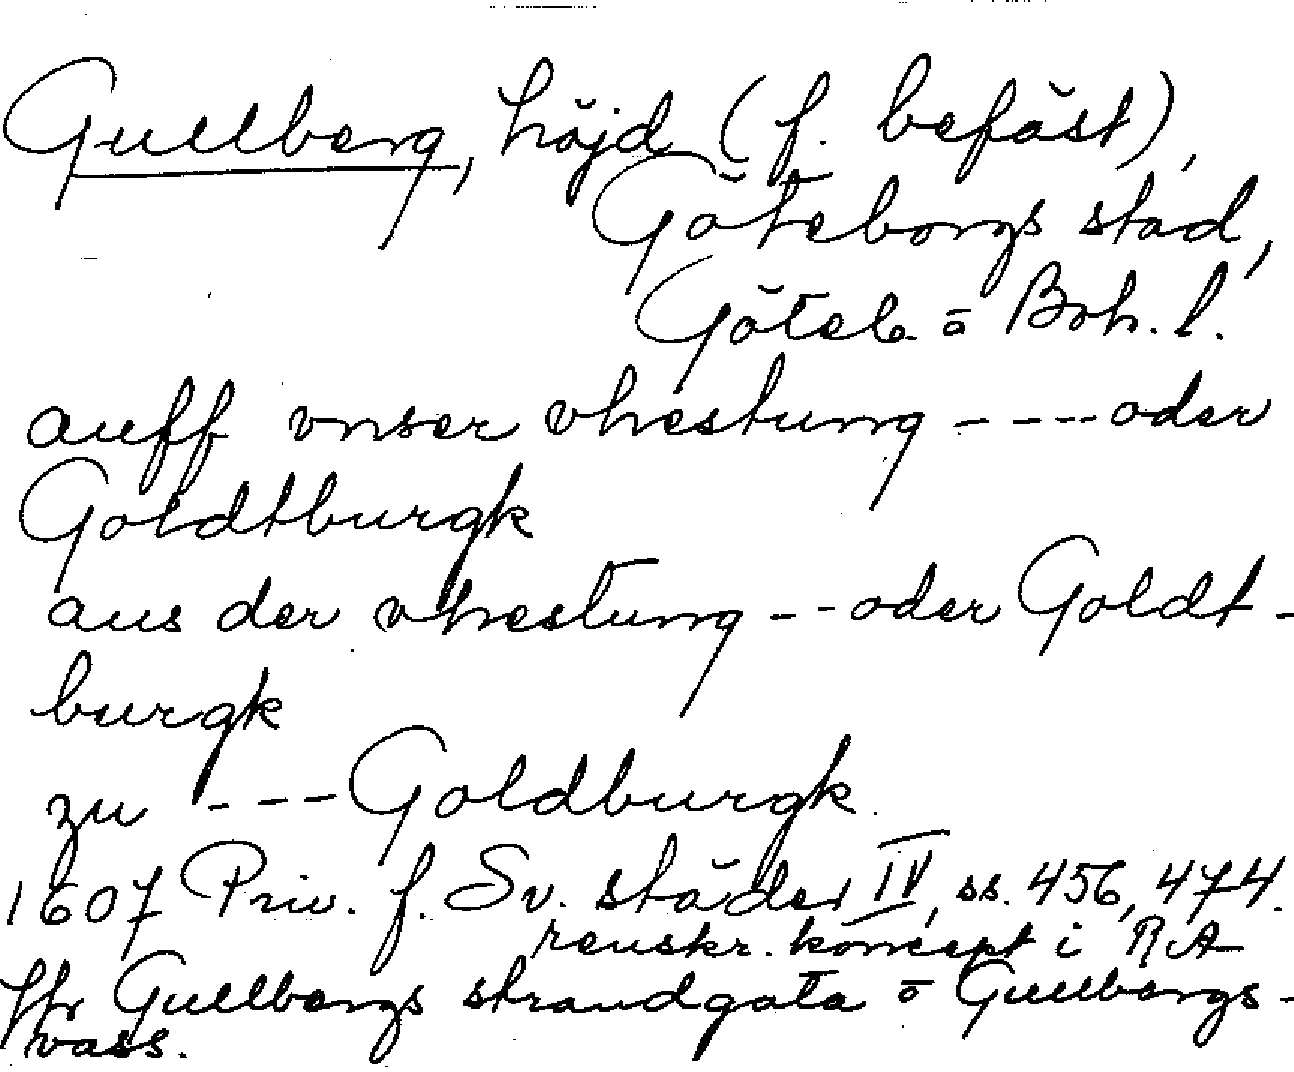 Gullberg, höjd (f. befäst),
Göteborgs stad,
Göteb. o Boh. l.
auff vnser vhestung ---- oder
Goldtburgk
aus der vhestung -- oder Goldt-
burgk
zu --- Goldburgk.
1607 Priv. f. Sv. städer IV, ss. 456, 474.
renskr. koncept i RA
Jfr Gullbergs strandgata o Gullbergs-
vass.